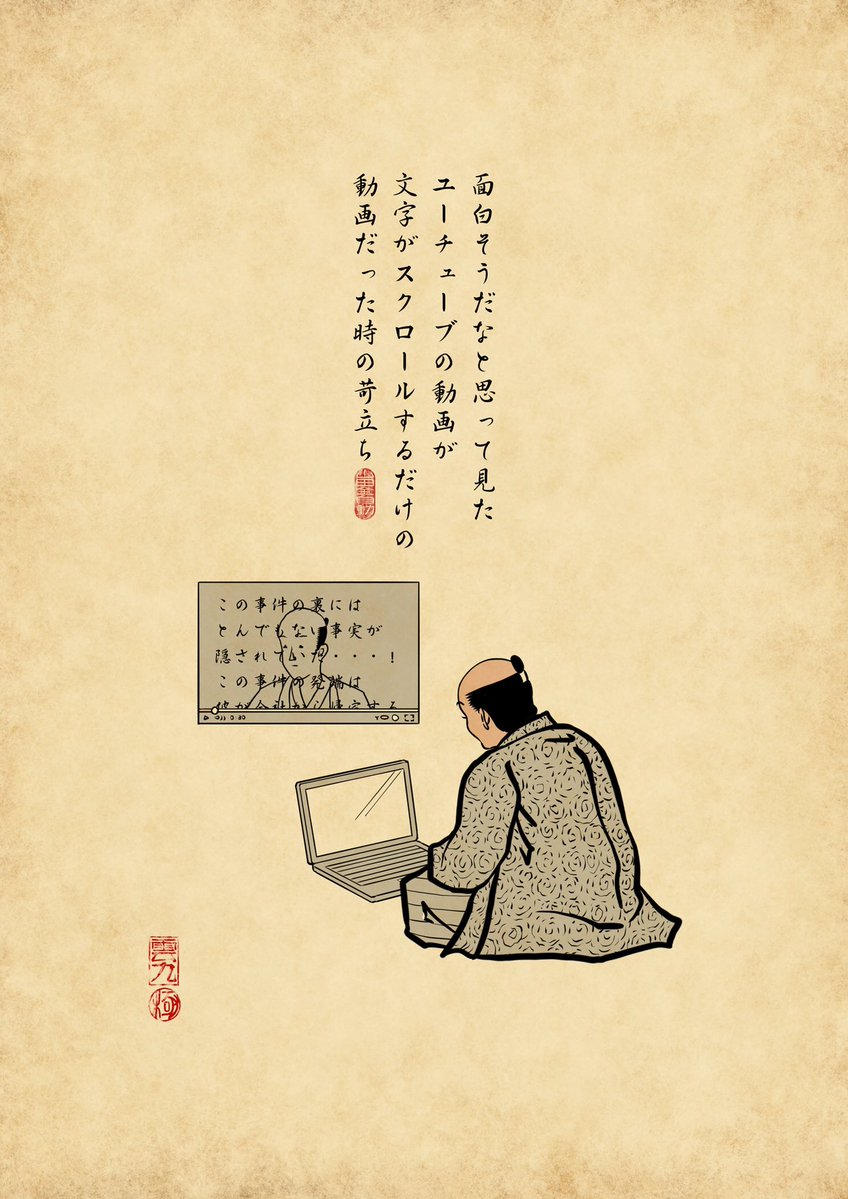 面白そうだなと思って見た
ユーチューブの動画が
文字がスクロールするだけの
動画だった時の苛立ち
この事件の裏には
とんでもない事実が
隠されていた・・・!
この事件の発端は
彼が会社から帰宅する
0:30